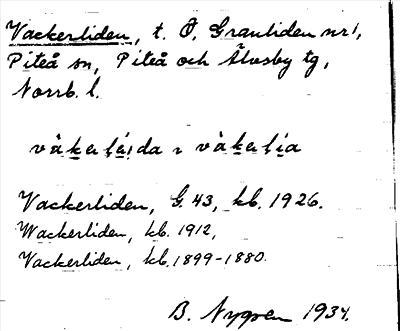 Vackerliden, t. Ö. Granliden nr 1,
Piteå sn, Piteå och Älvsby tg,
Norrb. l.
Vackerliden, G. 43, kb. 1926.
Wackerliden, kb. 1912,
Vackerliden, kb. 1899-1880.
B. Nygren 1934.